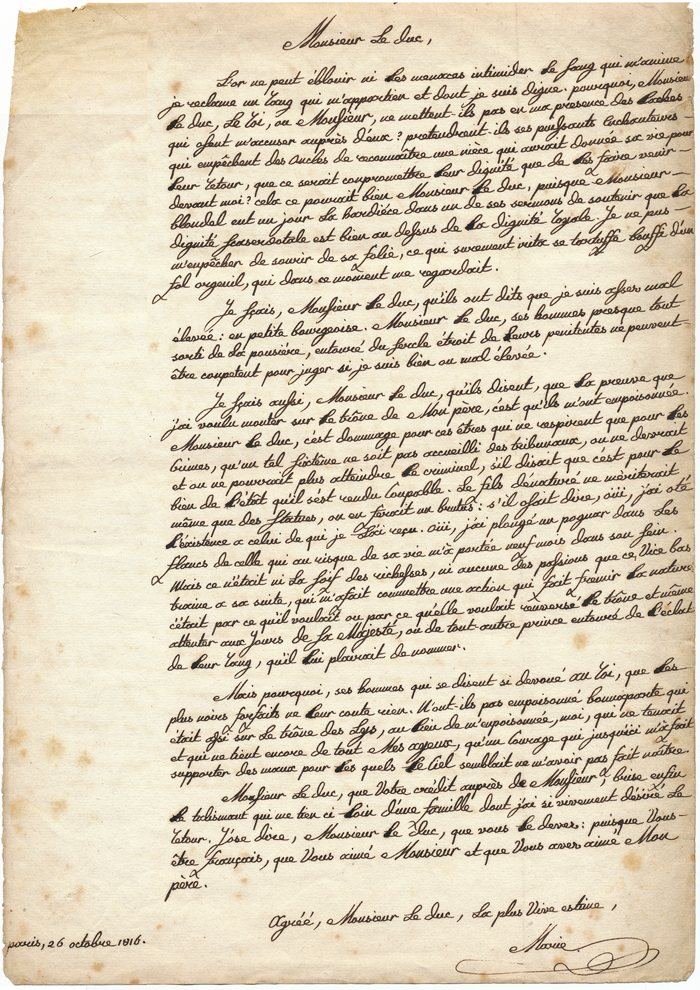 Monsieur Le Duc,
L'or ne peut éblouir ni Les menaces intimider Le Sang qui m'anime
je réclame un rang qui m'appartien et dont je suis digne. pourquoi, Monsieur
Le Duc, Le roi, ou Monsieur, ne mettent-ils pas en ma presence des Laches
qui osent m'accuser auprès d'eux? pretendroit-ils ses puissants Enchanteurs
qui empêchent des oncles de reconnaitre une nièce qui auroit donnée sa vie pour
Leur retour, que ce serait compromettre Leur dignité que de Les faire venir
devant moi? cela ce pouroit bien Monsieur Le Duc, puisque Monsieur
blondel eut un jour La hardiéce dans un de ses sermons de soutenir que La
dignité Saserdotale est bien au dessus de La dignité royale. Je ne pus
m'empêcher de sourir de sa folie, ce qui surement irita se tartuffe bouffi d'un
fol orgeuil, qui dans ce moment me regardait.
Je sçais, Monsieur Le Duc, qu'ils ont dits que je suis asses mal
élevée: en petite bourgeoise. Monsieur Le Duc, ses hommes presque tout
sorti de La pousière, entouré du sercle étroit de Leurs penitentes ne peuvent
être competent pour juger si je suis bien ou mal élevée.
Je sçais aussi, Monsieur Le Duc, qu'ils disent, que La preuve que
j'ai voulu monter sur Le trône de Mon père, c'est qu'ils m'ont empoisonnée.
Monsieur Le Duc, c'est dommage pour ces êtres qui ne respirent que pour Les
crimes, qu'un tel sistême ne soit pas accueilli des tribunaux, ou ne devroit
et on ne pourroit plus atteindre Le criminel, s'il disait que c'est pour Le
bien de L'état qu'il s'est rendu Coupable. Le fils dénaturé ne mériterait
même que des statues, on en feroit un brutus: s'il osait dire, oüi, j'ai oté
L'existence a celui de qui je L'ai reçu. oüi, j'ai plongé un poignar dans Les
flancs de celle qui au risque de sa vie m'a portée neuf mois dans son sein.
Mais ce n'étoit ni La soif des richesses, ni aucune des passions que ce Vice bas
traine a sa suite, qui m'a fait commettre une action qui fait fremir La nature
c'étoit par ce qu'il vouloit ou par ce qu'elle vouloit renversé Le trône et même
attenter aux jours de Sa Majesté, ou de tout autre prince entouré de L'éclat
de Leur rang, qu'il Lui plairait de nommer.
Mais pourquoi, ses hommes qui se disent si devoué au roi, que Les
plus noirs forfaits ne Leur coute rien. N'ont-ils pas empoisonné bounaparte qui
étoit assi sur Le trône des Lys, au Lieu de m'empoisonnée, moi, qui ne tenait
et qui ne tient encore de tout Mes ayeux, qu'un Courage qui jusqu'ici m'a fait
supporter des maux pour Les quels Le Ciel semblait ne m'avoir pas fait naître.
Monsieur Le Duc, que Votre crédit auprès de Monsieur, brise enfin
Le talismant qui me tien ci Loin d'une famille dont j'ai si vivement désiré Le
retour. J'ose dire, Monsieur Le Duc, que vous Le devez: puisque Vous
être français, que Vous aimé Monsieur et que Vous aves aimé Mon
père.
Agréé, Monsieur Le Duc, La plus Vive estime,
paris, 26 octobre 1816.
Marie